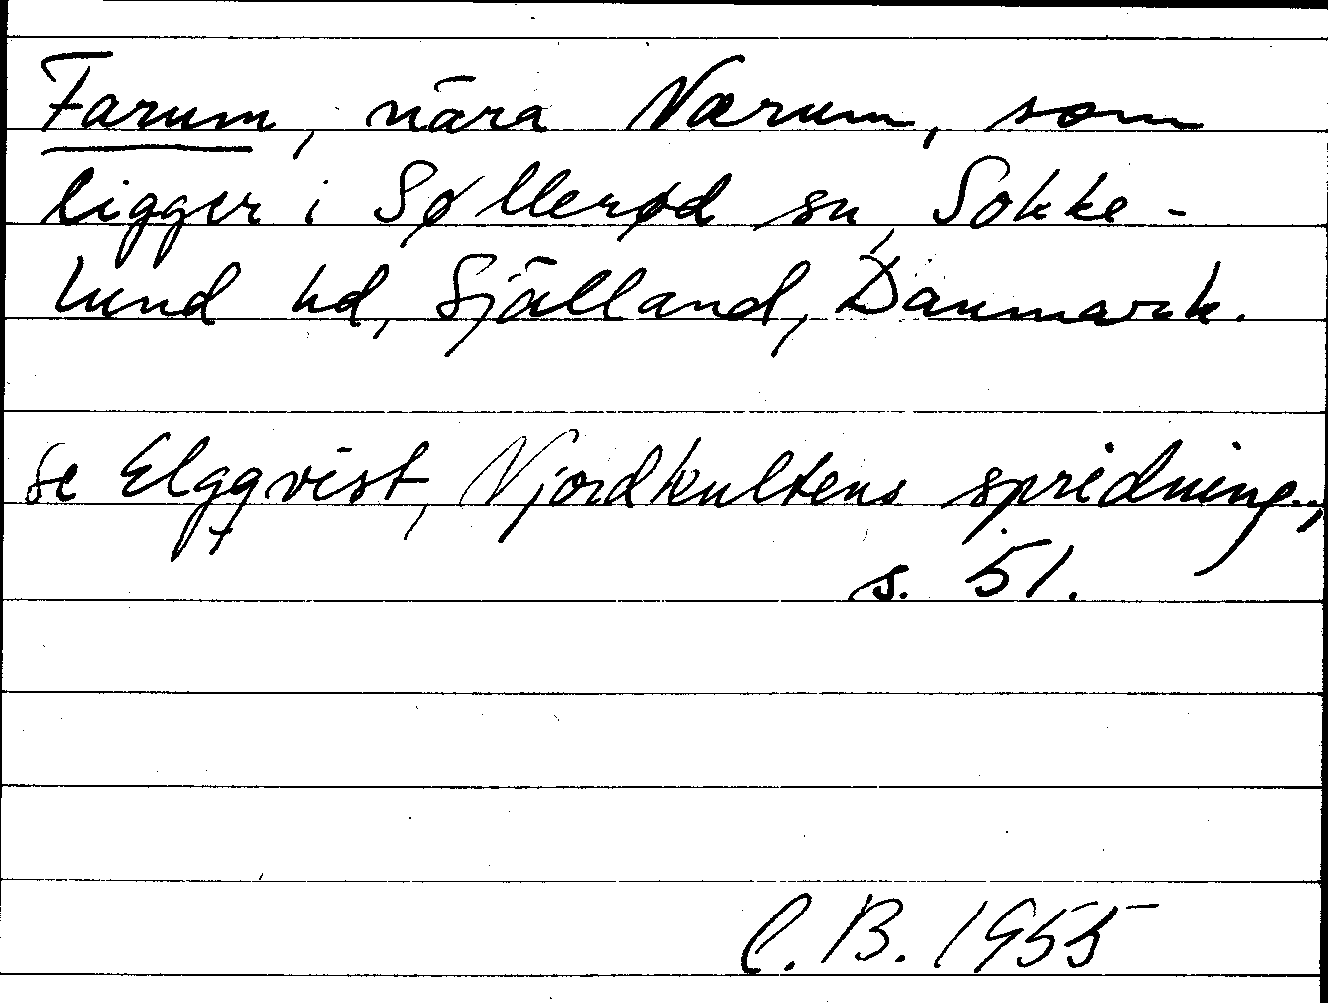 Farum, nära Nærum, som
ligger i Søllerød sn, Sokke-
lund hd, Själland, Danmark.
se Elgqvist, Njordkultens spridning,
s. 51.
C.B. 1955